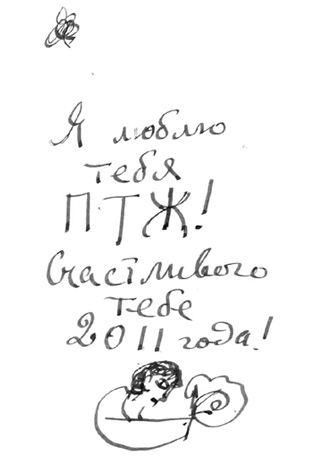 Я люблю
тебя
ПТЖ!
Счастливого
тебе
2011 года!